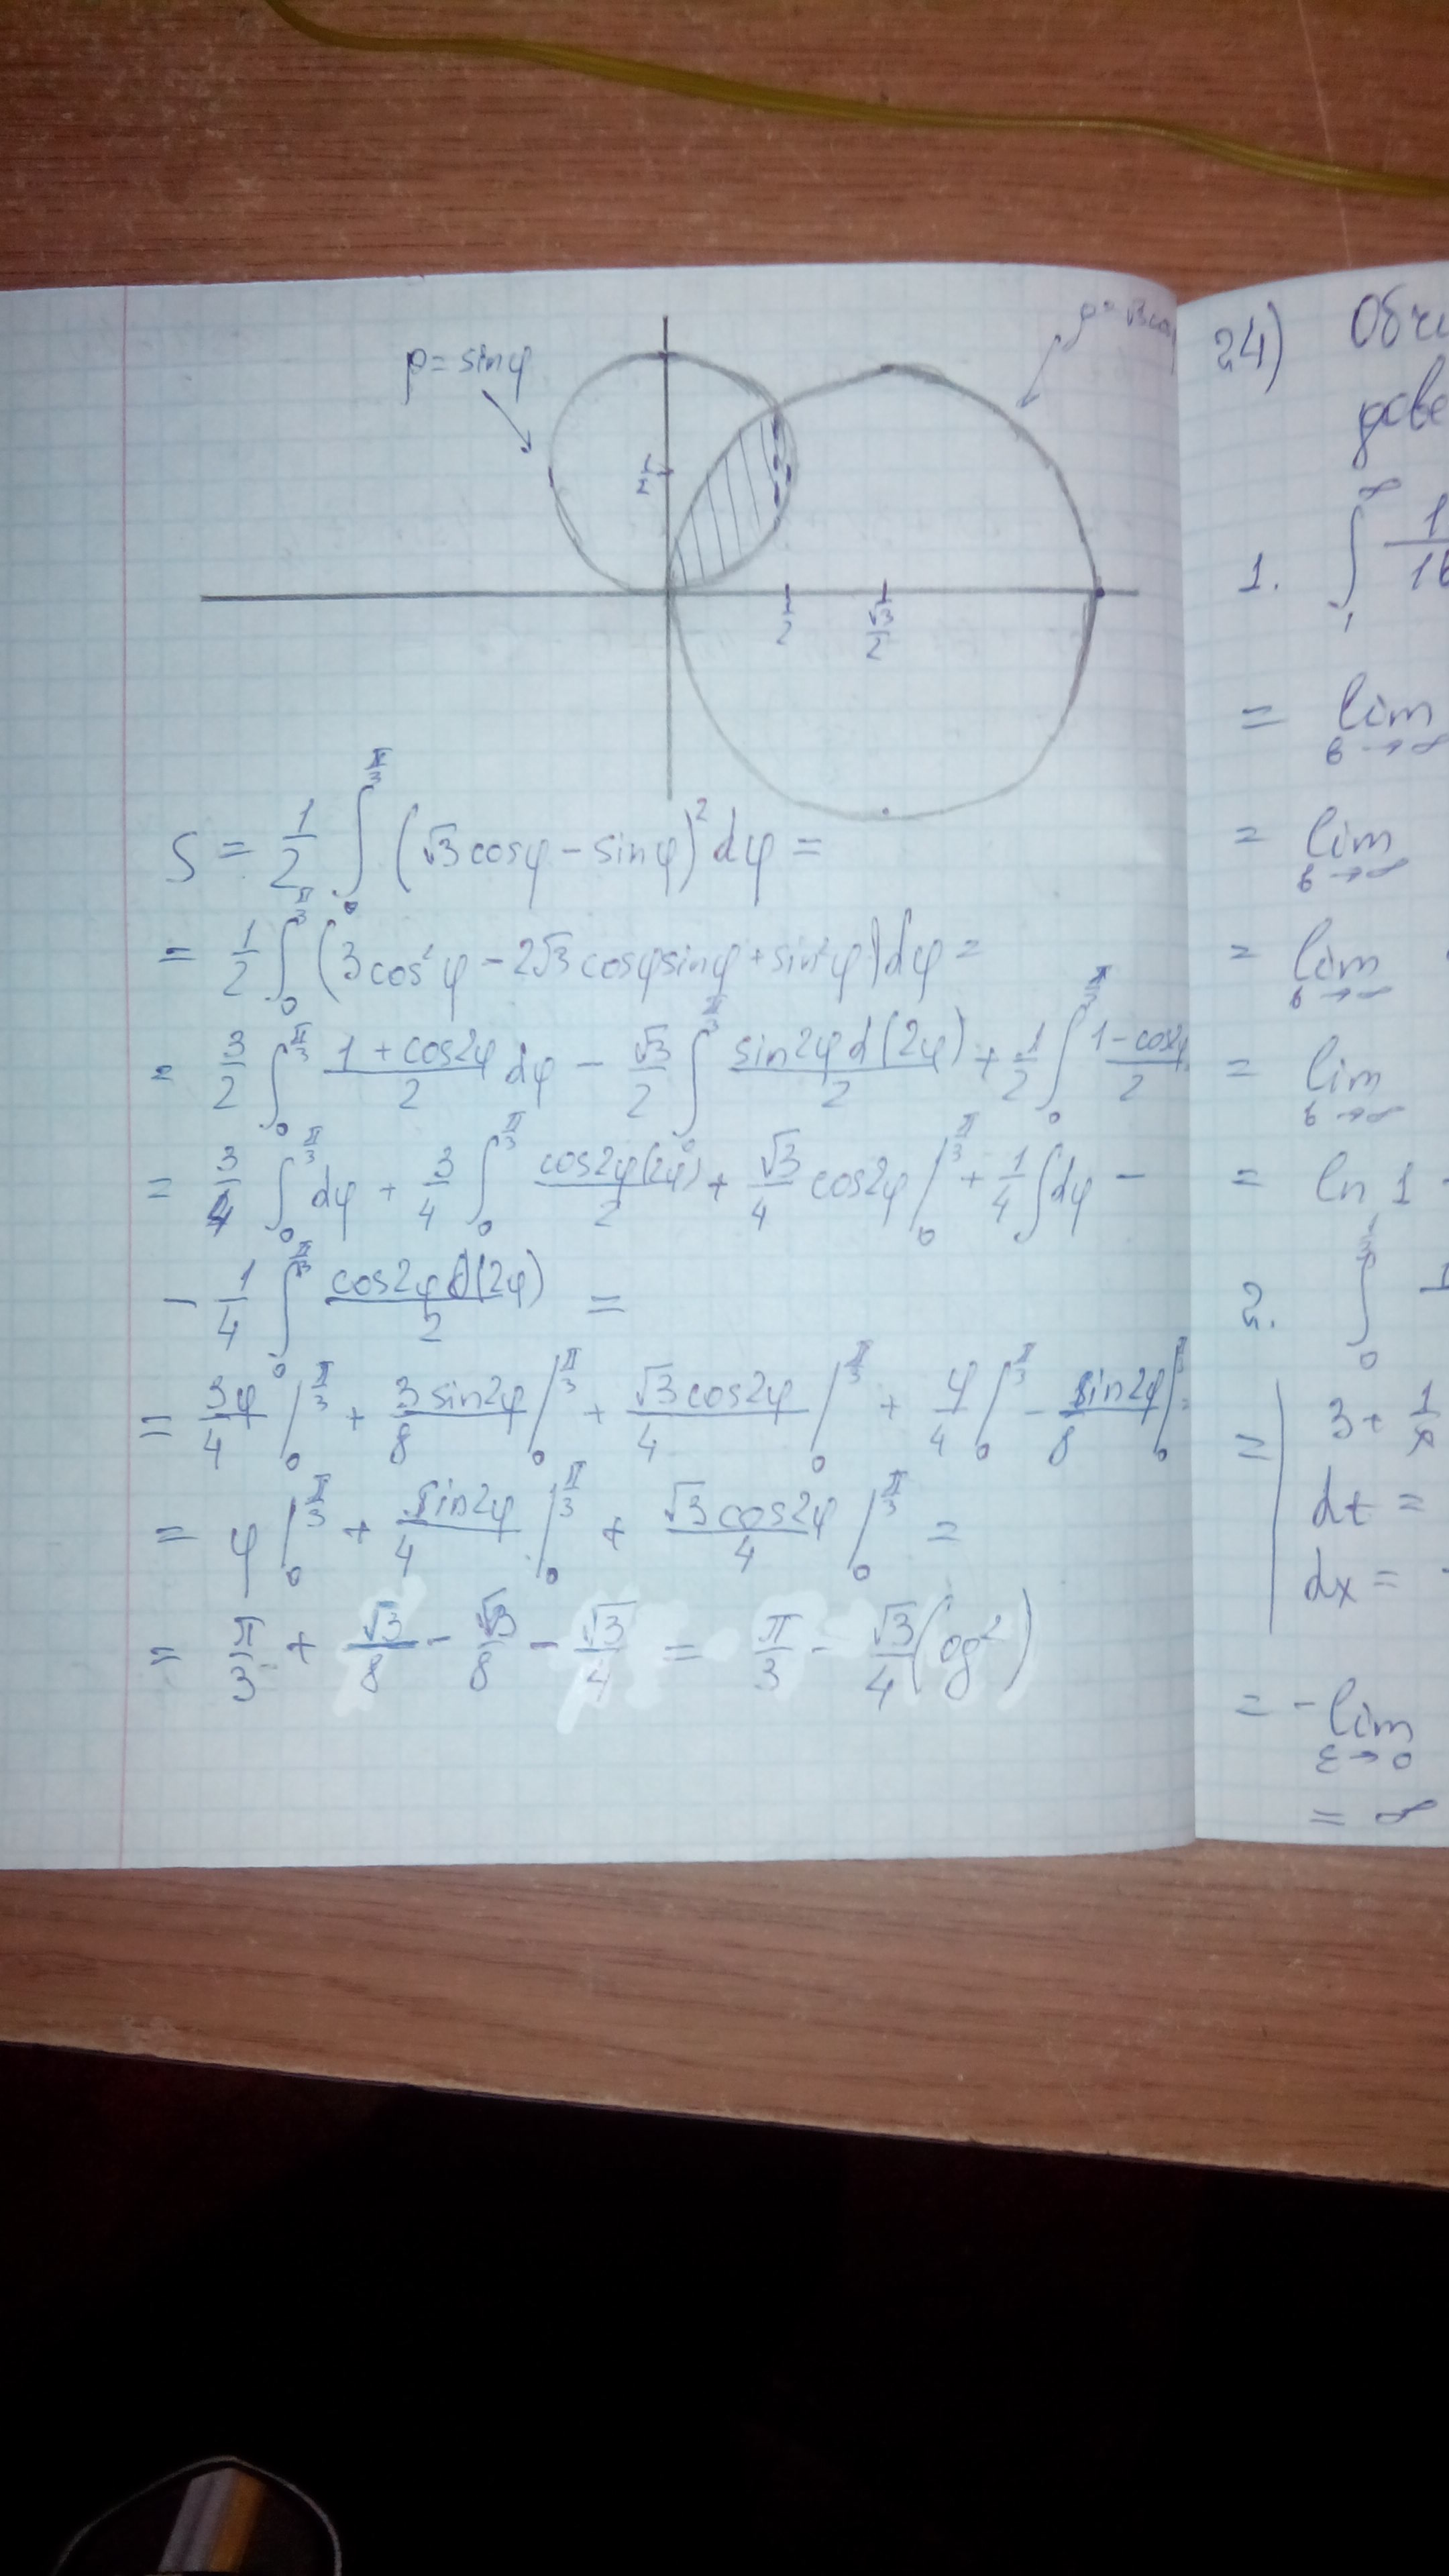 ρ = sinφ
ρ = √3cosφ
1/2
1/2
√3/2
S = 1/2 ∫₀^(π/3) (√3 cosφ − sinφ)² dφ =
= 1/2 ∫₀^(π/3) (3cos²φ − 2√3 cosφ sinφ + sin²φ) dφ =
= 3/2 ∫₀^(π/3) (1 + cos2φ)/2 dφ − √3/2 ∫₀^(π/3) (sin2φ d(2φ))/2 + 1/2 ∫₀^(π/3) (1 − cos2φ)/2
= 3/4 ∫₀^(π/3) dφ + 3/4 ∫₀^(π/3) (cos2φ(2φ))/2 + √3/4 cos2φ |₀^(π/3) + 1/4 ∫dφ −
− 1/4 ∫₀^(π/3) (cos2φ d(2φ))/2 =
= 3φ/4 |₀^(π/3) + 3sin2φ/8 |₀^(π/3) + √3cos2φ/4 |₀^(π/3) + φ/4 |₀^(π/3) − sin2φ/8 |₀^(π/3) =
= φ |₀^(π/3) + sin2φ/4 |₀^(π/3) + √3cos2φ/4 |₀^(π/3) =
= π/3 + √3/8 − √3/8 − √3/4 = π/3 − √3/4 (ед²)
24)
1. ∫₁^∞ 1
= lim b→∞
= lim b→∞
= lim b→∞
= lim b→∞
= ln 1
2. ∫₀
= | 3 + 1/x
dt =
dx =
= − lim ε→0
= ∞